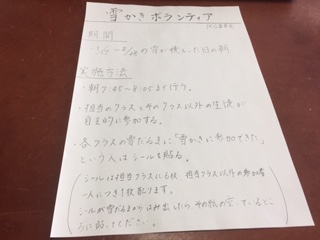 雪かきボランティア
期間
・1/9 ~ 2/28 の雪が積もった日の朝
実施方法
・朝7:45~8:05まで行う。
・担当のクラスとそのクラス以外の生徒が
自主的に参加する。
・各クラスの雪だるまに「雪かきに参加できた」
という人はシールを貼る。
(シールは担当クラスに6枚 担当クラス以外の参加者
一人につき1枚配ります。
シールが雪だるまからはみ出したら その紙の空いているとこ
ろに貼ってください。)